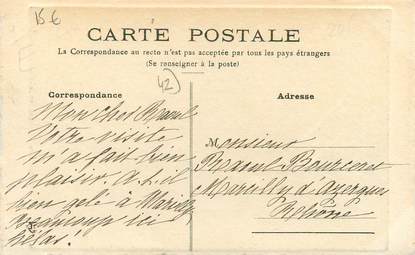 15€
CARTE POSTALE
La Correspondance au recto n'est pas acceptée par tous les pays étrangers
(Se renseigner à la poste)
42
Correspondance
Adresse
Mon cher Raoul
Votre visite
m'a fait bien
plaisir. A t-il
bien gelé à Marcilly
Beaucoup ici
hélas!
Monsieur
Raoul
Marcilly d'Azergues
Rhône